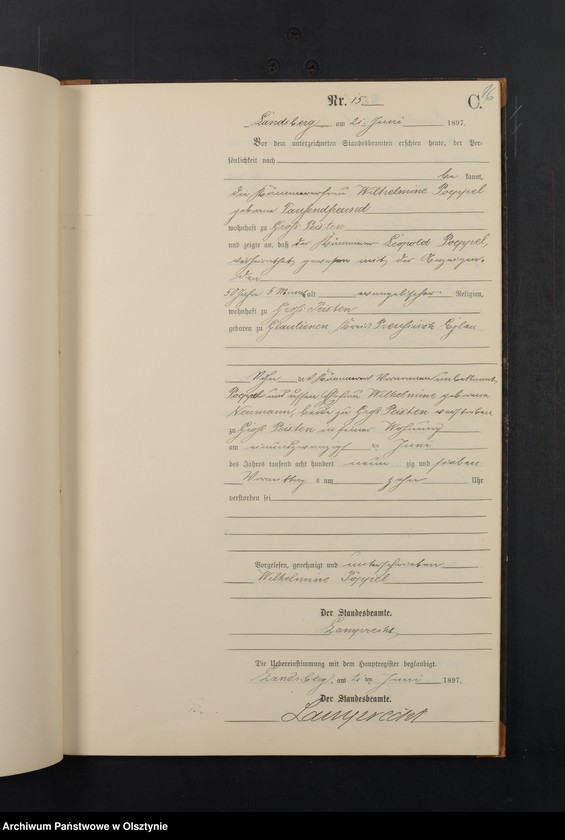 Nr. 15
C.
96
Landsberg am 21. Juni 1897.
Vor dem unterzeichneten Standesbeamten erschien heute, der Per-
sönlichkeit nach
be kannt,
die Kämmererfrau Wilhelmine Poeppel
geborene Tausendfreund
wohnhaft zu Groß Peisten
und zeigte an, daß der Kämmerer Leopold Poeppel,
verheirathet gewesen mit der Anzeigen-
den
50 Jahre 5 Monate alt evangelischer Religion,
wohnhaft zu Groß Peisten
geboren zu Glautienen Kreis Preußisch Eylau
Sohn des Kämmerers Vornamen unbekannt,
Poeppel und dessen Ehefrau Wilhelmine geborene
Neumann, beide zu Groß Peisten verstorben
zu Groß Peisten in seiner Wohnung
am einundzwanzigsten Juni
des Jahres tausend acht hundert neun zig und sieben
Vormittag s um zehn Uhr
verstorben sei
Vorgelesen, genehmigt und unterschrieben
Wilhelmine Pöppel
Der Standesbeamte.
Lamprecht
Die Uebereinstimmung mit dem Hauptregister beglaubigt.
Landsberg, am 21 ten Juni 1897.
Der Standesbeamte.
Lamprecht
Archiwum Państwowe w Olsztynie